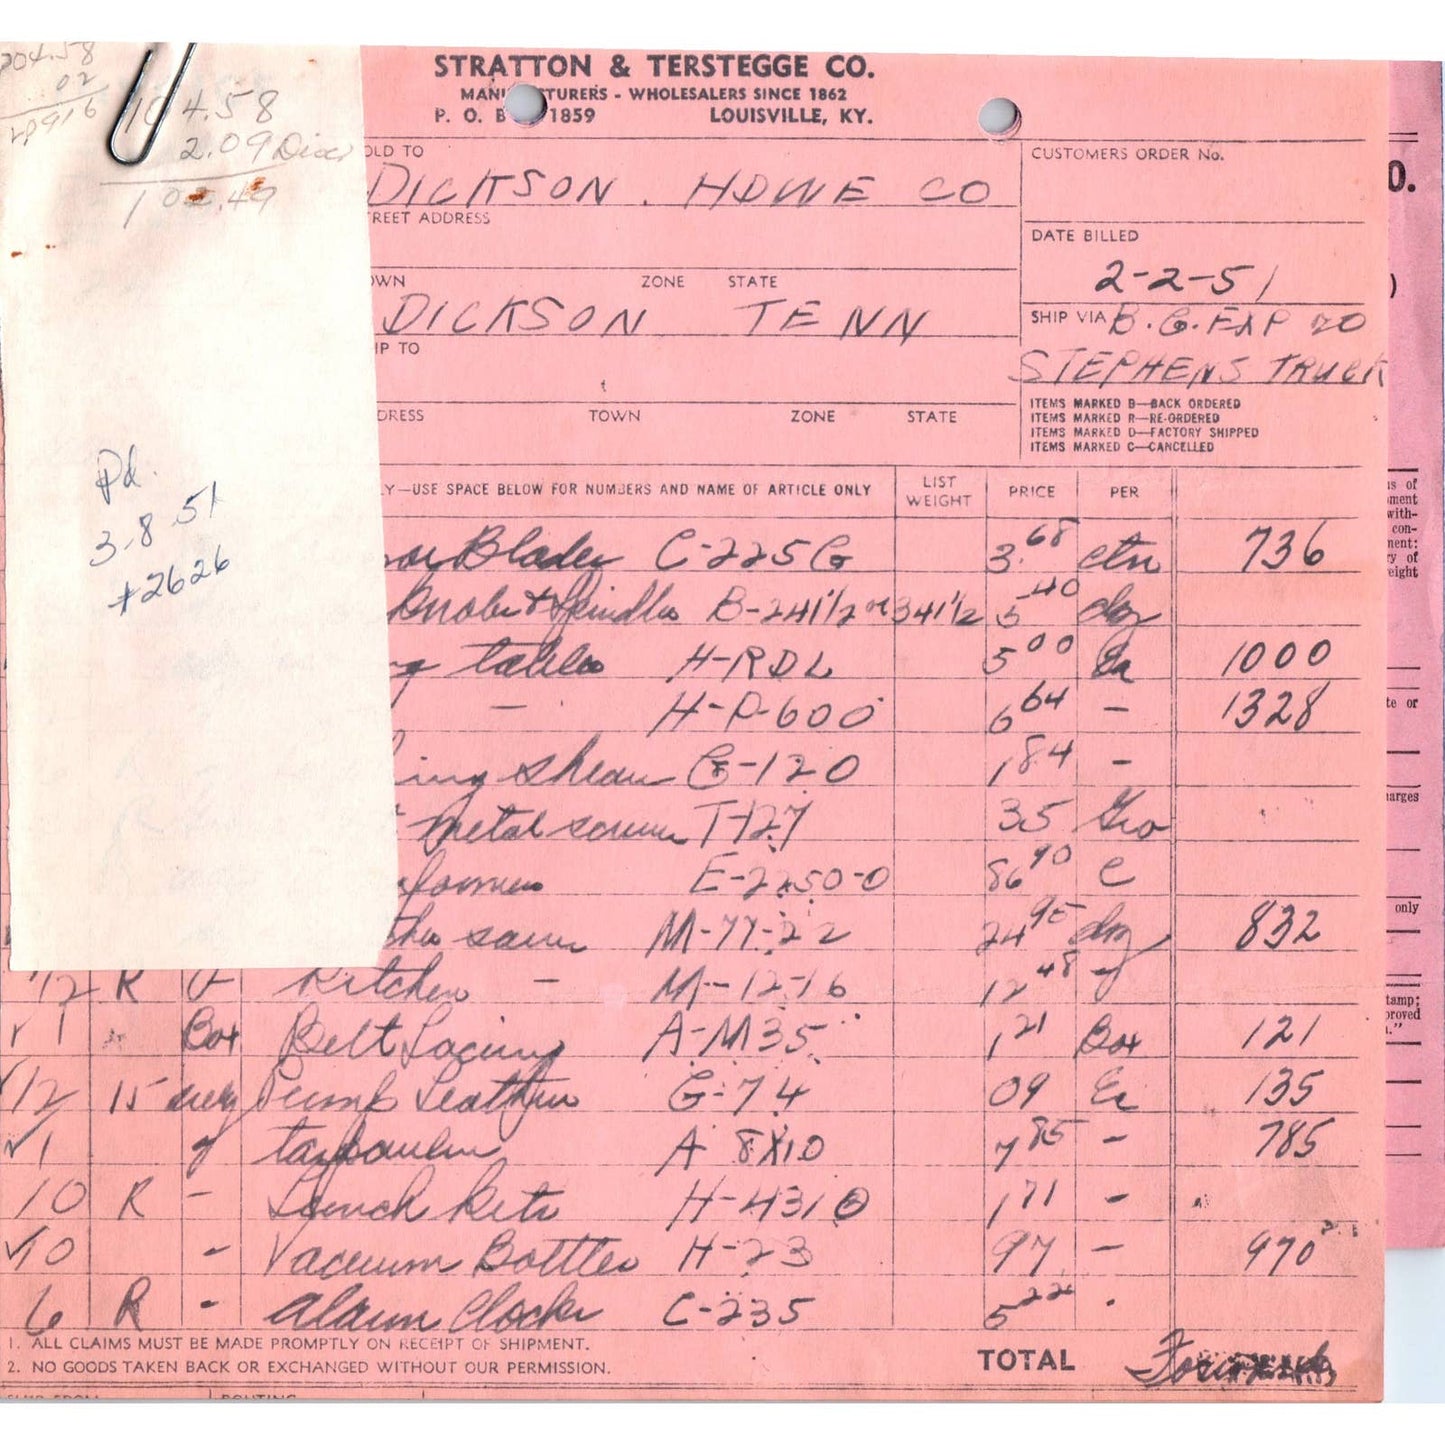 204.58
02
104.58
2.09 Disc
102.49
Pd.
3-8 51
#2626
STRATTON & TERSTEGGE CO.
MANU TURERS - WHOLESALERS SINCE 1862
P. O. B 1859 LOUISVILLE, KY.
OLD TO
DICKSON. HDWE CO
TREET ADDRESS
OWN ZONE STATE
DICKSON TENN
IP TO
DRESS TOWN ZONE STATE
CUSTOMERS ORDER No.
DATE BILLED
2-2-51
SHIP VIA B.G. EXP TO
STEPHENS TRUCK
ITEMS MARKED B—BACK ORDERED
ITEMS MARKED R—RE-ORDERED
ITEMS MARKED D—FACTORY SHIPPED
ITEMS MARKED C—CANCELLED
LY—USE SPACE BELOW FOR NUMBERS AND NAME OF ARTICLE ONLY LIST WEIGHT PRICE PER
Blades C-225G 3.68 ctn 736
Knobs & Spindles B-241½ or 341½ 5 40 doz
ng tables H-RDL 5 00 Ea 1000
— H-P-600 6 64 — 1328
ing shears G-120 1 84 —
metal screws T-127 35 Gro
E-2250-0 86 90 C
saws M-77-22 24 95 doz 832
/12 R Kitchen — M-12-16 12 48
√1 Box Belt Lacing A-M35 1 21 Box 121
√12 15 Pump Leathers G-74 09 Ea 135
√1 tarpaulin A 8X10 7 85 — 785
10 R — Lunch Kits H-4310 1 71 —
√10 — Vacuum Bottles H-23 97 — 970
6 R - Alarm Clocks C-235 5 22
1. ALL CLAIMS MUST BE MADE PROMPTLY ON RECEIPT OF SHIPMENT.
2. NO GOODS TAKEN BACK OR EXCHANGED WITHOUT OUR PERMISSION.
TOTAL Forward
SHIP FROM ROUTING
O.
)
is of
ment
with-
con-
nent:
ry of
eight
te or
arges
only
tamp;
proved
."